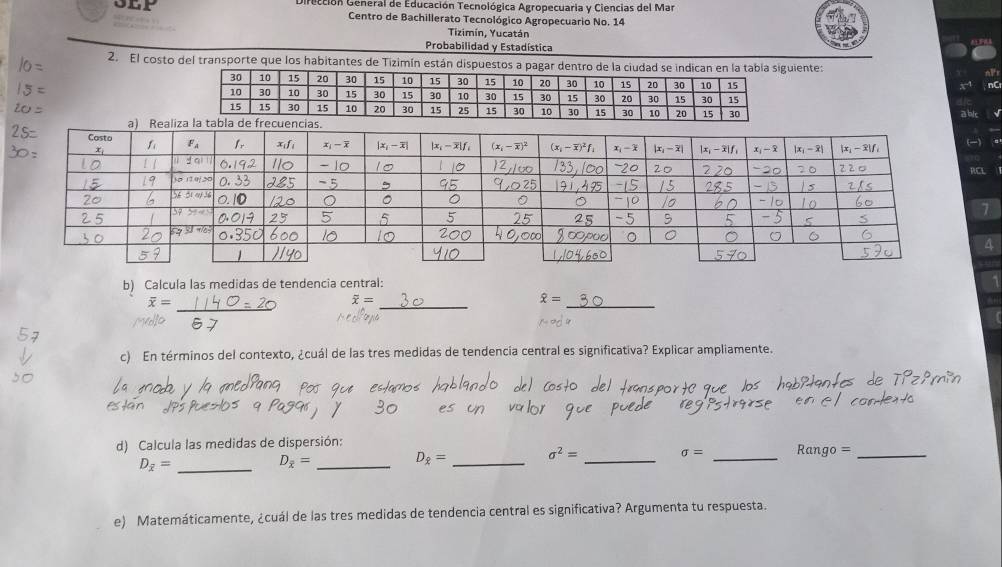 SEP
Dirección General de Educación Tecnológica Agropecuaria y Ciencias del Mar
Centro de Bachillerato Tecnológico Agropecuario No. 14
Tizimín, Yucatán
Probabilidad y Estadística
2. El costo del transporte que los habitantes de Tizimín están dispuestos a pagar dentro de la ciudad se indican en la tabla siguiente:
10 =
15 =
20 =
25 =
30 =
30 10 15 20 30 15 10 15 30 15 10 20 30 10 15 20 30 10 15
10 30 10 30 15 30 15 30 10 30 15 30 15 30 20 30 15 30 15
15 15 30 15 10 20 30 15 25 15 30 10 30 15 30 10 20 15 30
a) Realiza la tabla de frecuencias.
Costo xᵢ fᵢ F_A fᵣ xᵢfᵢ xᵢ − x̅ |xᵢ − x̅| |xᵢ − x̅|fᵢ (xᵢ − x̅)² (xᵢ − x̅)²fᵢ xᵢ − x̃ |xᵢ − x̃| |xᵢ − x̃|fᵢ xᵢ − x̂ |xᵢ − x̂| |xᵢ − x̂|fᵢ
10 11 0.192 110 -10 10 110 12,100 133,100 -20 20 220 -20 20 220
15 19 0.33 285 -5 5 95 9,025 171,475 -15 15 285 -15 15 285
20 6 0.10 120 0 0 0 0 0 -10 10 60 -10 10 60
25 1 0.017 25 5 5 5 25 25 -5 5 5 -5 5 5
30 20 0.350 600 10 10 200 40,000 800,000 0 0 0 0 0 0
57 1 1140 410 1,104,600 570 570
b) Calcula las medidas de tendencia central:
x̅ = 1140 = 20 x̃ = 30 x̂ = 30
57
media mediana moda
57
↓
30
c) En términos del contexto, ¿cuál de las tres medidas de tendencia central es significativa? Explicar ampliamente.
la moda y la mediana por que estamos hablando del costo del transporte que los habitantes de Tizimin
están dispuestos a pagar, y 30 es un valor que puede registrarse en el contexto
d) Calcula las medidas de dispersión:
D_x̅ = ______ D_x̃ = ______ D_x̂ = ______ σ² = ______ σ = ______ Rango = ______
e) Matemáticamente, ¿cuál de las tres medidas de tendencia central es significativa? Argumenta tu respuesta.